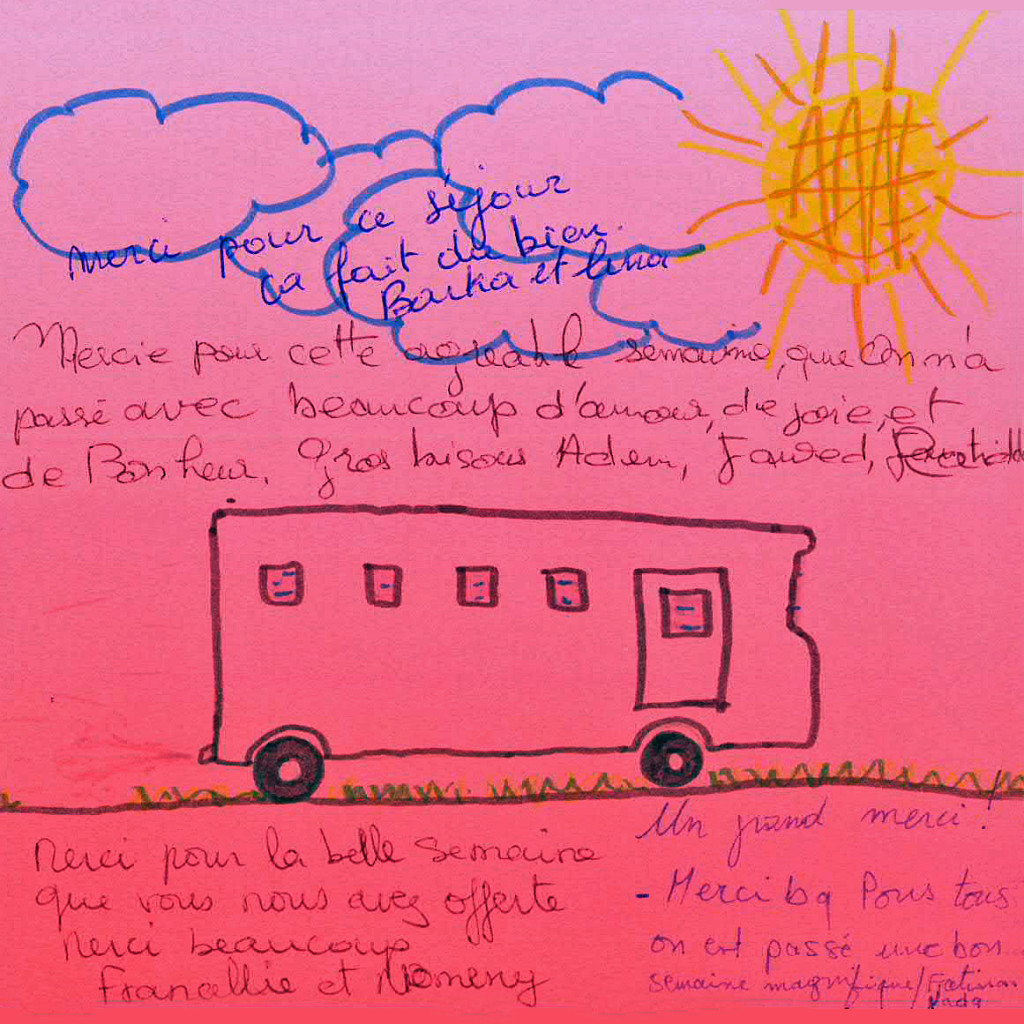 merci pour ce séjour
ça fait du bien.
Barka et lina
Mercie pour cette agréable semaine, que On n'a
passé avec beaucoup d'amour, de joie, et
de Bonheur. Gros bisous Adem, Fawed,
Un grand merci!
Merci pour la belle semaine
que vous nous avez offerte
Merci beaucoup
Francallie et Nomeny
- Merci bq Pous tous
on est passé une bon...
semaine magnifique/
Nada